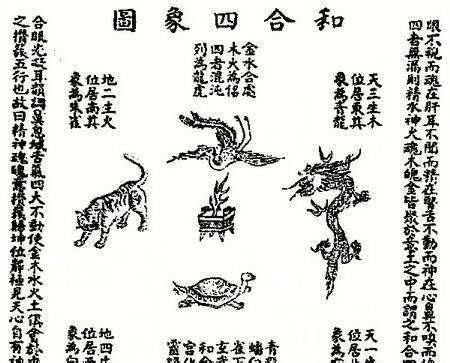 和合四象圖
眼不視而魂在肝耳不聞而精在腎舌不動而神在心鼻不嗅而
四者無漏則精水神火魂木魄金皆聚於意土之中而謂之和合
天三生木
位居東其
象為青龍
金水合處
木火為侶
四者混沌
列為龍虎
地二生火
位居南其
象為朱雀
天一
位居
象為
青龍
雀下
玄武
和合
宮化
地四生
位居西
象為白
合眼光凝耳韻調鼻息緘舌氣四大不動使金木水火土俱會於
之攢簇五行也故曰精神魂魄意攢簇歸坤位靜極見天心自有